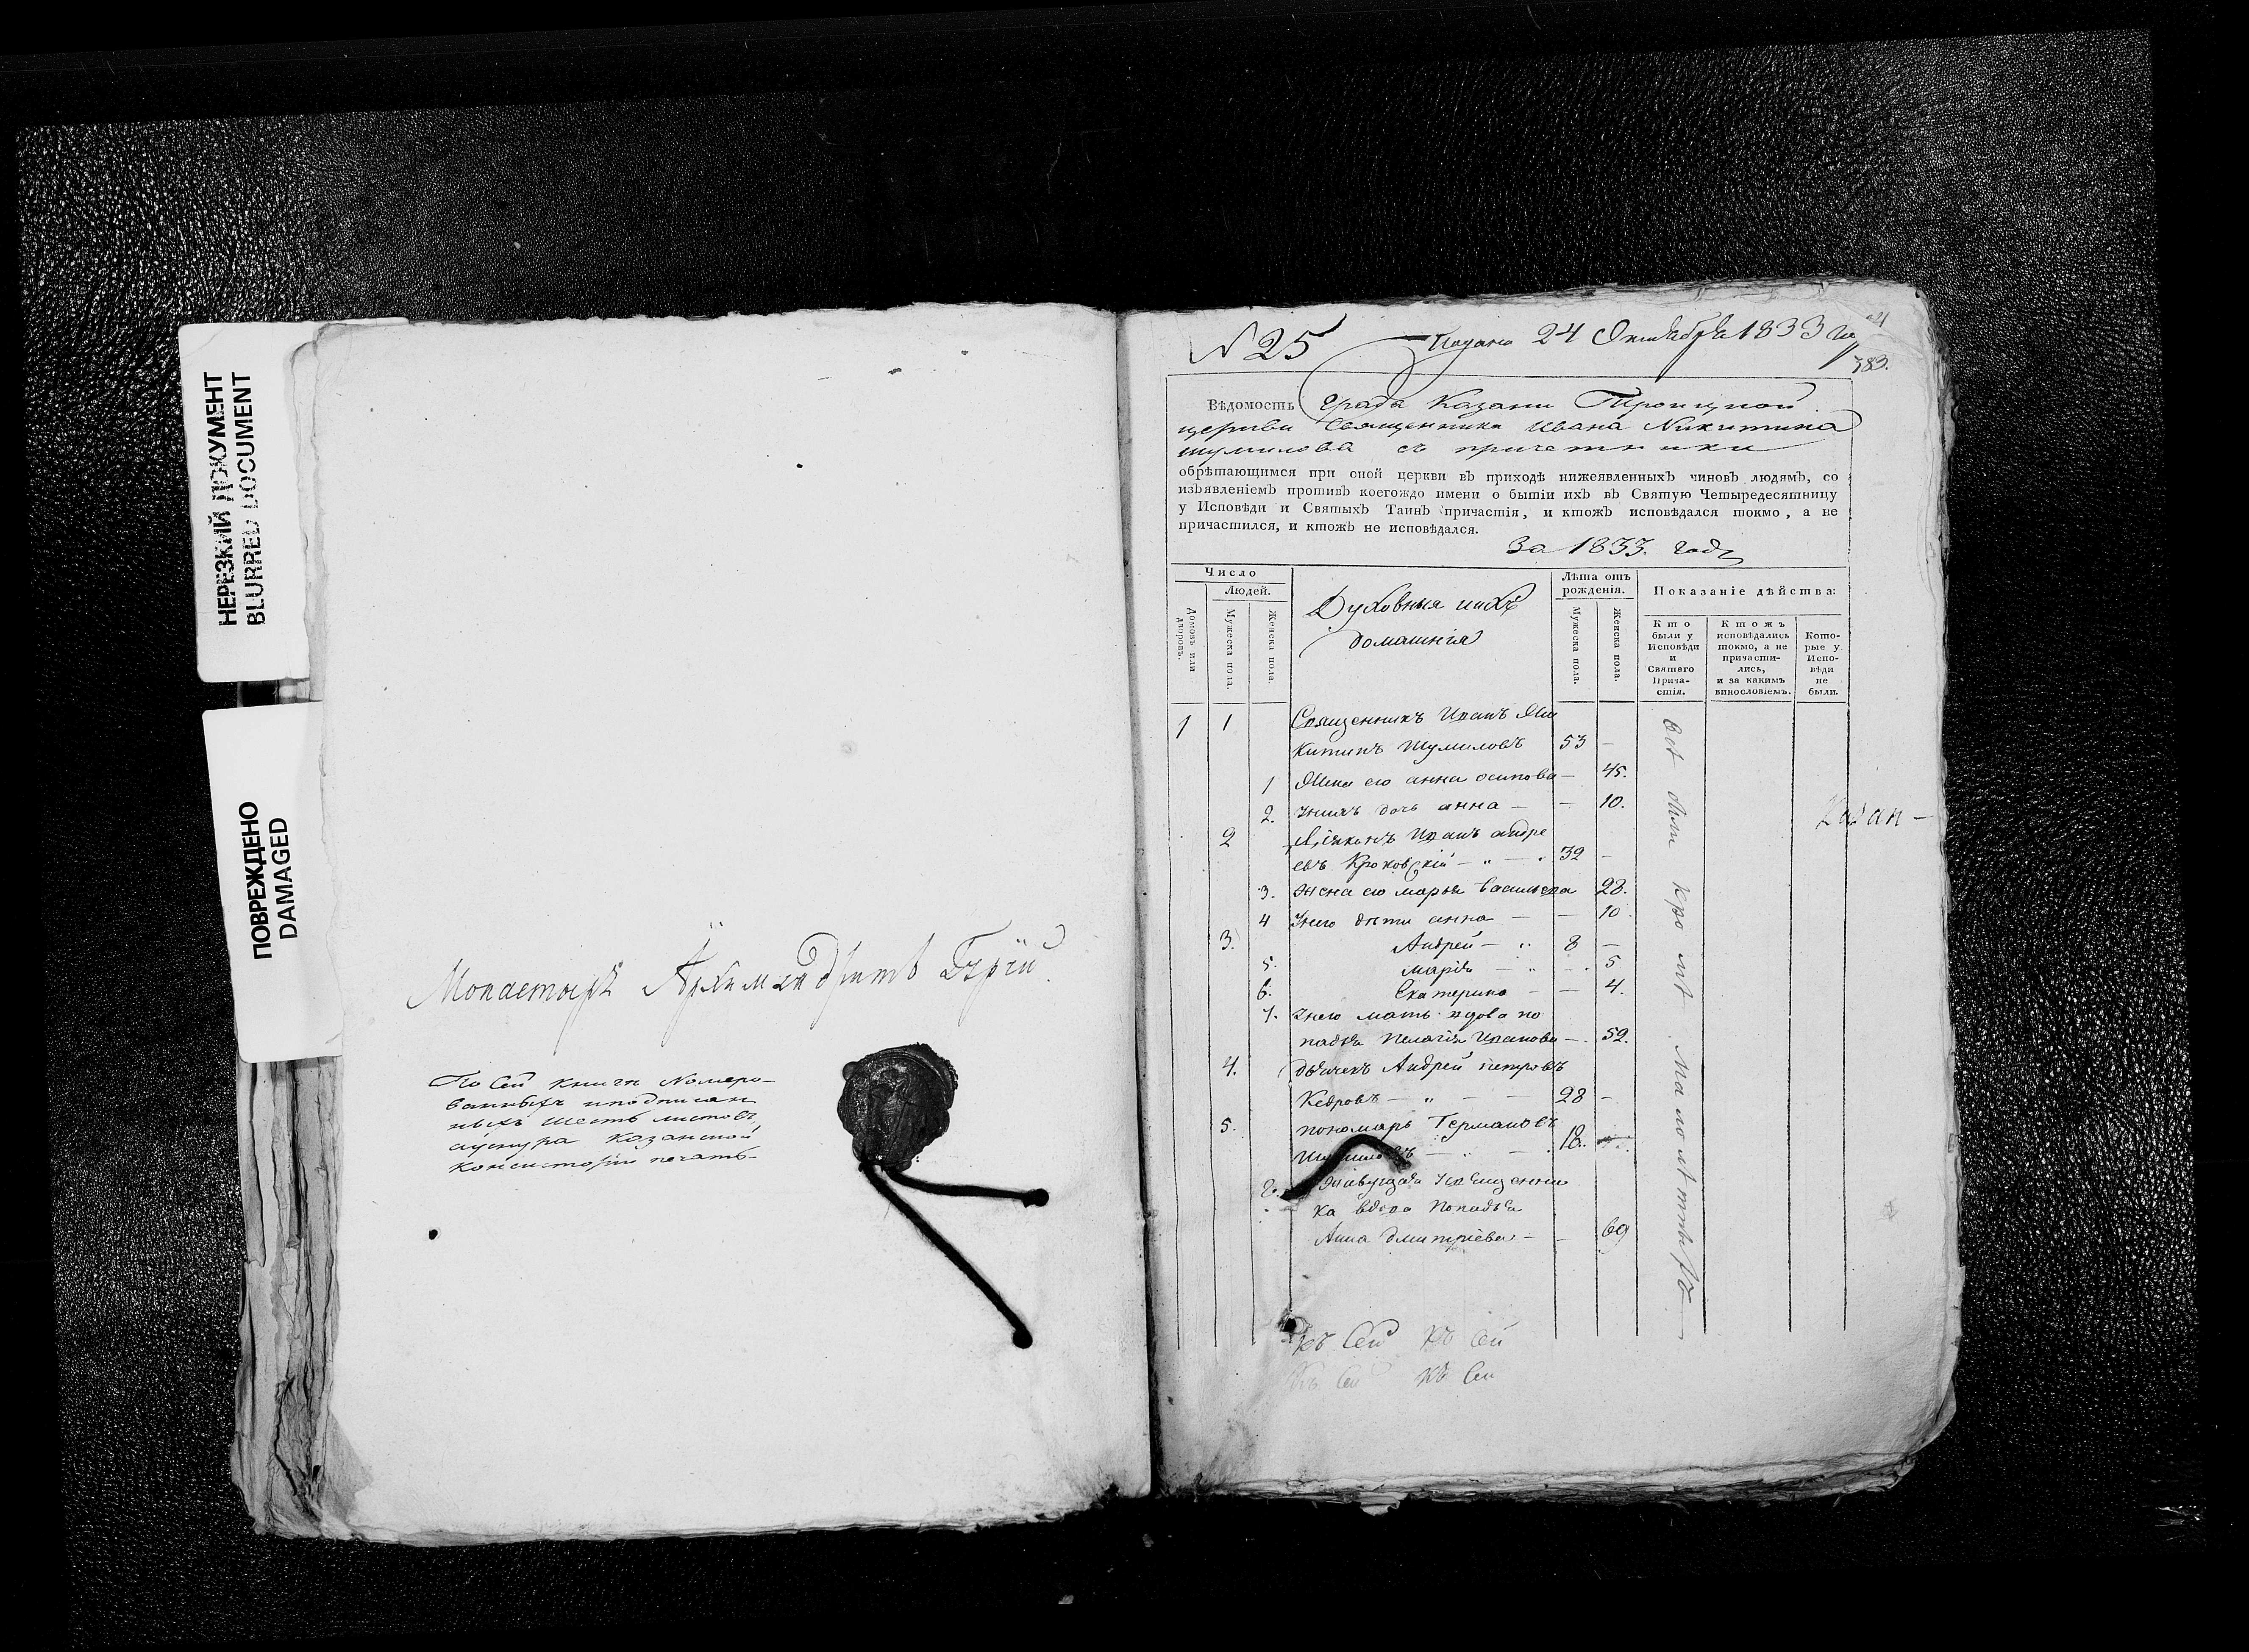 НЕРЕЗКИЙ ДОКУМЕНТ
BLURRED DOCUMENT
ПОВРЕЖДЕНО
DAMAGED
Монастыря Архимандритъ Гурій.
По сей книги номеро-
ванныхъ иподписан
ныхъ шесть листовъ
ушнура казанской
консисторіи печать
№ 25
Подано 24 Октября 1833 го
383.
Вѣдомость Града Казани Троицкой
церкви Священника Ивана Никитина
шумилова съ причетники
обрѣтающимся при оной церкви въ приходѣ нижеявленныхъ чиновъ людямъ, со
изъявленіемъ противъ коегождо имени о бытіи ихъ въ Святую Четыредесятницу
у Исповѣди и Святыхъ Таинъ причастія, и ктожъ исповѣдался токмо, а не
причастился, и ктожъ не исповѣдался.
За 1833. годъ
Число
Людей.
Домовъ или дворовъ.
Мужеска пола.
Женска пола.
Духовныя ихъ
домашнія
Лѣта отъ рожденія.
Мужеска пола.
Женска пола.
Показаніе дѣйства:
Кто были у Исповѣди и Святаго Прича-стія.
Ктожъ исповѣдались токмо, а не причасти-лись, и за какимъ винословіемъ.
Кото-рые у Испо-вѣди не были.
1 1 Священникъ Иванъ Ни
китинъ Шумиловъ 53 –
1 Жена его анна осипова – 45.
2. Унихъ дочь анна – – 10.
2 Діяконъ Иванъ андре
евъ Кроковскій – " – 32 –
3. Жена его марья васильева 28.
4 Унего дѣти анна – – 10.
3. Андрей – " 8 –
5. марія – " – 5
6. Екатерина – – 4.
7. Унего мать вдова по
падья Пелагія Иванова – 52.
4. дьячекъ Андрей петровъ
Кедровъ – " – – 28 –
5. пономарь Германовъ
18.
8. Живущая Священни
ка вдова Попадья
Анна дмитріева – – 69
Всѣ
кромѣ
Казан –
къ Сей къ Сей
Къ Сей къ Сей